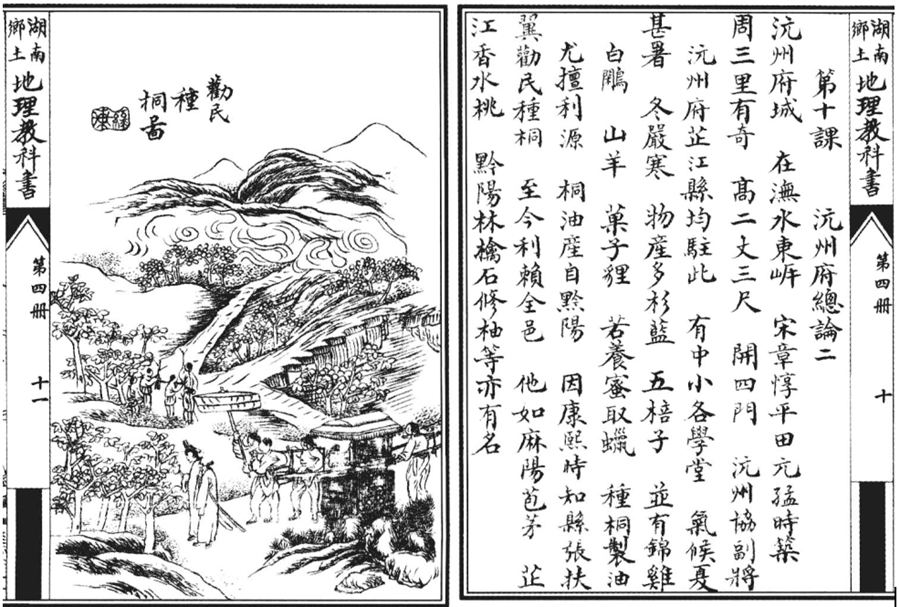 湖南鄉土地理教科書
第四册
十
第十課 沅州府總論二
沅州府城 在潕水東岸 宋章惇平田元猛時築
周三里有奇 高二丈三尺 開四門 沅州協副將
沅州府芷江縣均駐此 有中小各學堂 氣候夏
甚暑 冬嚴寒 物產多杉藍 五棓子 並有錦雞
白鷴 山羊 菓子狸 若養蜜取蠟 種桐製油
尤擅利源 桐油產自黔陽 因康熙時知縣張扶
翼勸民種桐 至今利賴全邑 他如麻陽苞茅 芷
江香水桃 黔陽林檎石修柚等亦有名
勸民
種
桐啚
湖南鄉土地理教科書
第四册
十一